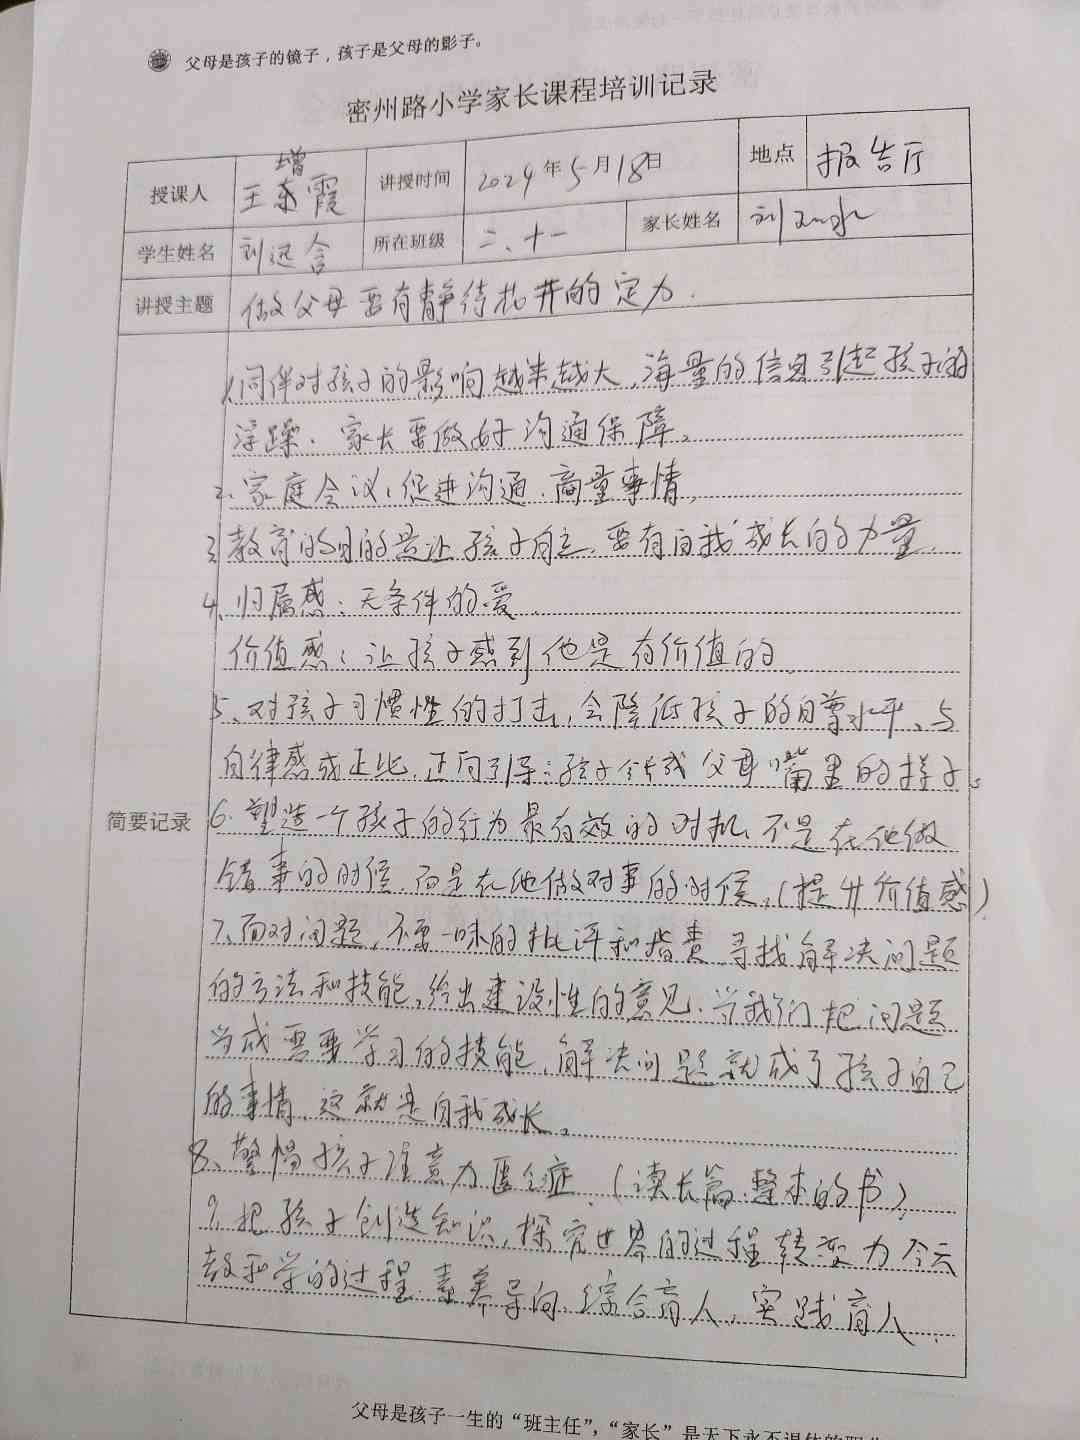 父母是孩子的镜子，孩子是父母的影子。
密州路小学家长课程培训记录
授课人 王增霞 讲授时间 2024年5月18日 地点 报告厅
学生姓名 刘远含 所在班级 二、十一 家长姓名 刘
讲授主题 做父母要有静待扎井的定力.
1.同伴对孩子的影响越来越大,海量的信息引起孩子的
浮躁.家长要做好沟通保障。
2.家庭会议:促进沟通.商量事情,
3.教育的目的是让孩子自立.要有自我成长的力量.
4.归属感:无条件的爱.
价值感:让孩子感到他是有价值的.
5、对孩子习惯性的打击,会降低孩子的自尊水平、与
自律感成正比.正向引导:孩子会长成父母嘴里的样子。
简要记录
6.塑造一个孩子的行为最有效的时机,不是在他做
错事的时候.而是在他做对事的时候,(提升价值感).
7.面对问题,不要一味的批评和指责.寻找解决问题
的方法和技能,给出建设性的意见.当我们把问题
当成需要学习的技能,解决问题就成了孩子自己
的事情,这就是自我成长。
8、警惕孩子注意力匮乏症.(读长篇.整本的书),
9.把孩子创造知识,探究世界的过程转变为
教和学的过程.素养导向.综合育人,实践育人.
父母是孩子一生的“班主任”，“家长”是天下永不退休的